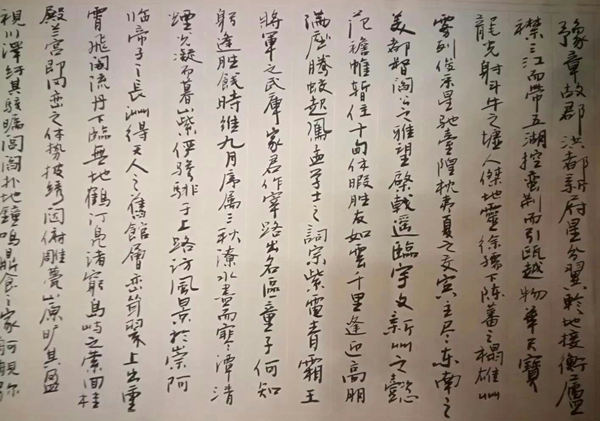 豫章故郡洪都新府星分翼軫地接衡廬
襟三江而帶五湖控蠻荆而引甌越物華天寶
龍光射斗牛之墟人傑地靈徐孺下陳蕃之榻雄州
霧列俊采星馳臺隍枕夷夏之交賓主尽东南之
美都督閻公之雅望棨戟遥臨宇文新州之懿
范襜帷暫住十旬休暇胜友如雲千里逢迎高朋
滿座騰蛟起鳳孟学士之詞宗紫電青霜王
將軍之武庫家君作宰路出名區童子何知
躬逢胜餞時維九月序屬三秋潦水盡而寒潭清
煙光凝而暮山紫儼驂騑于上路訪風景於崇阿
臨帝子之長洲得天人之舊館層巒聳翠上出重
霄飛閣流丹下臨無地鶴汀鳧渚窮島嶼之縈回桂
殿兰宮即岡巒之体勢披綉闥俯雕甍山原旷其盈
視川澤紆其駭矚閭閻扑地鐘鳴鼎食之家